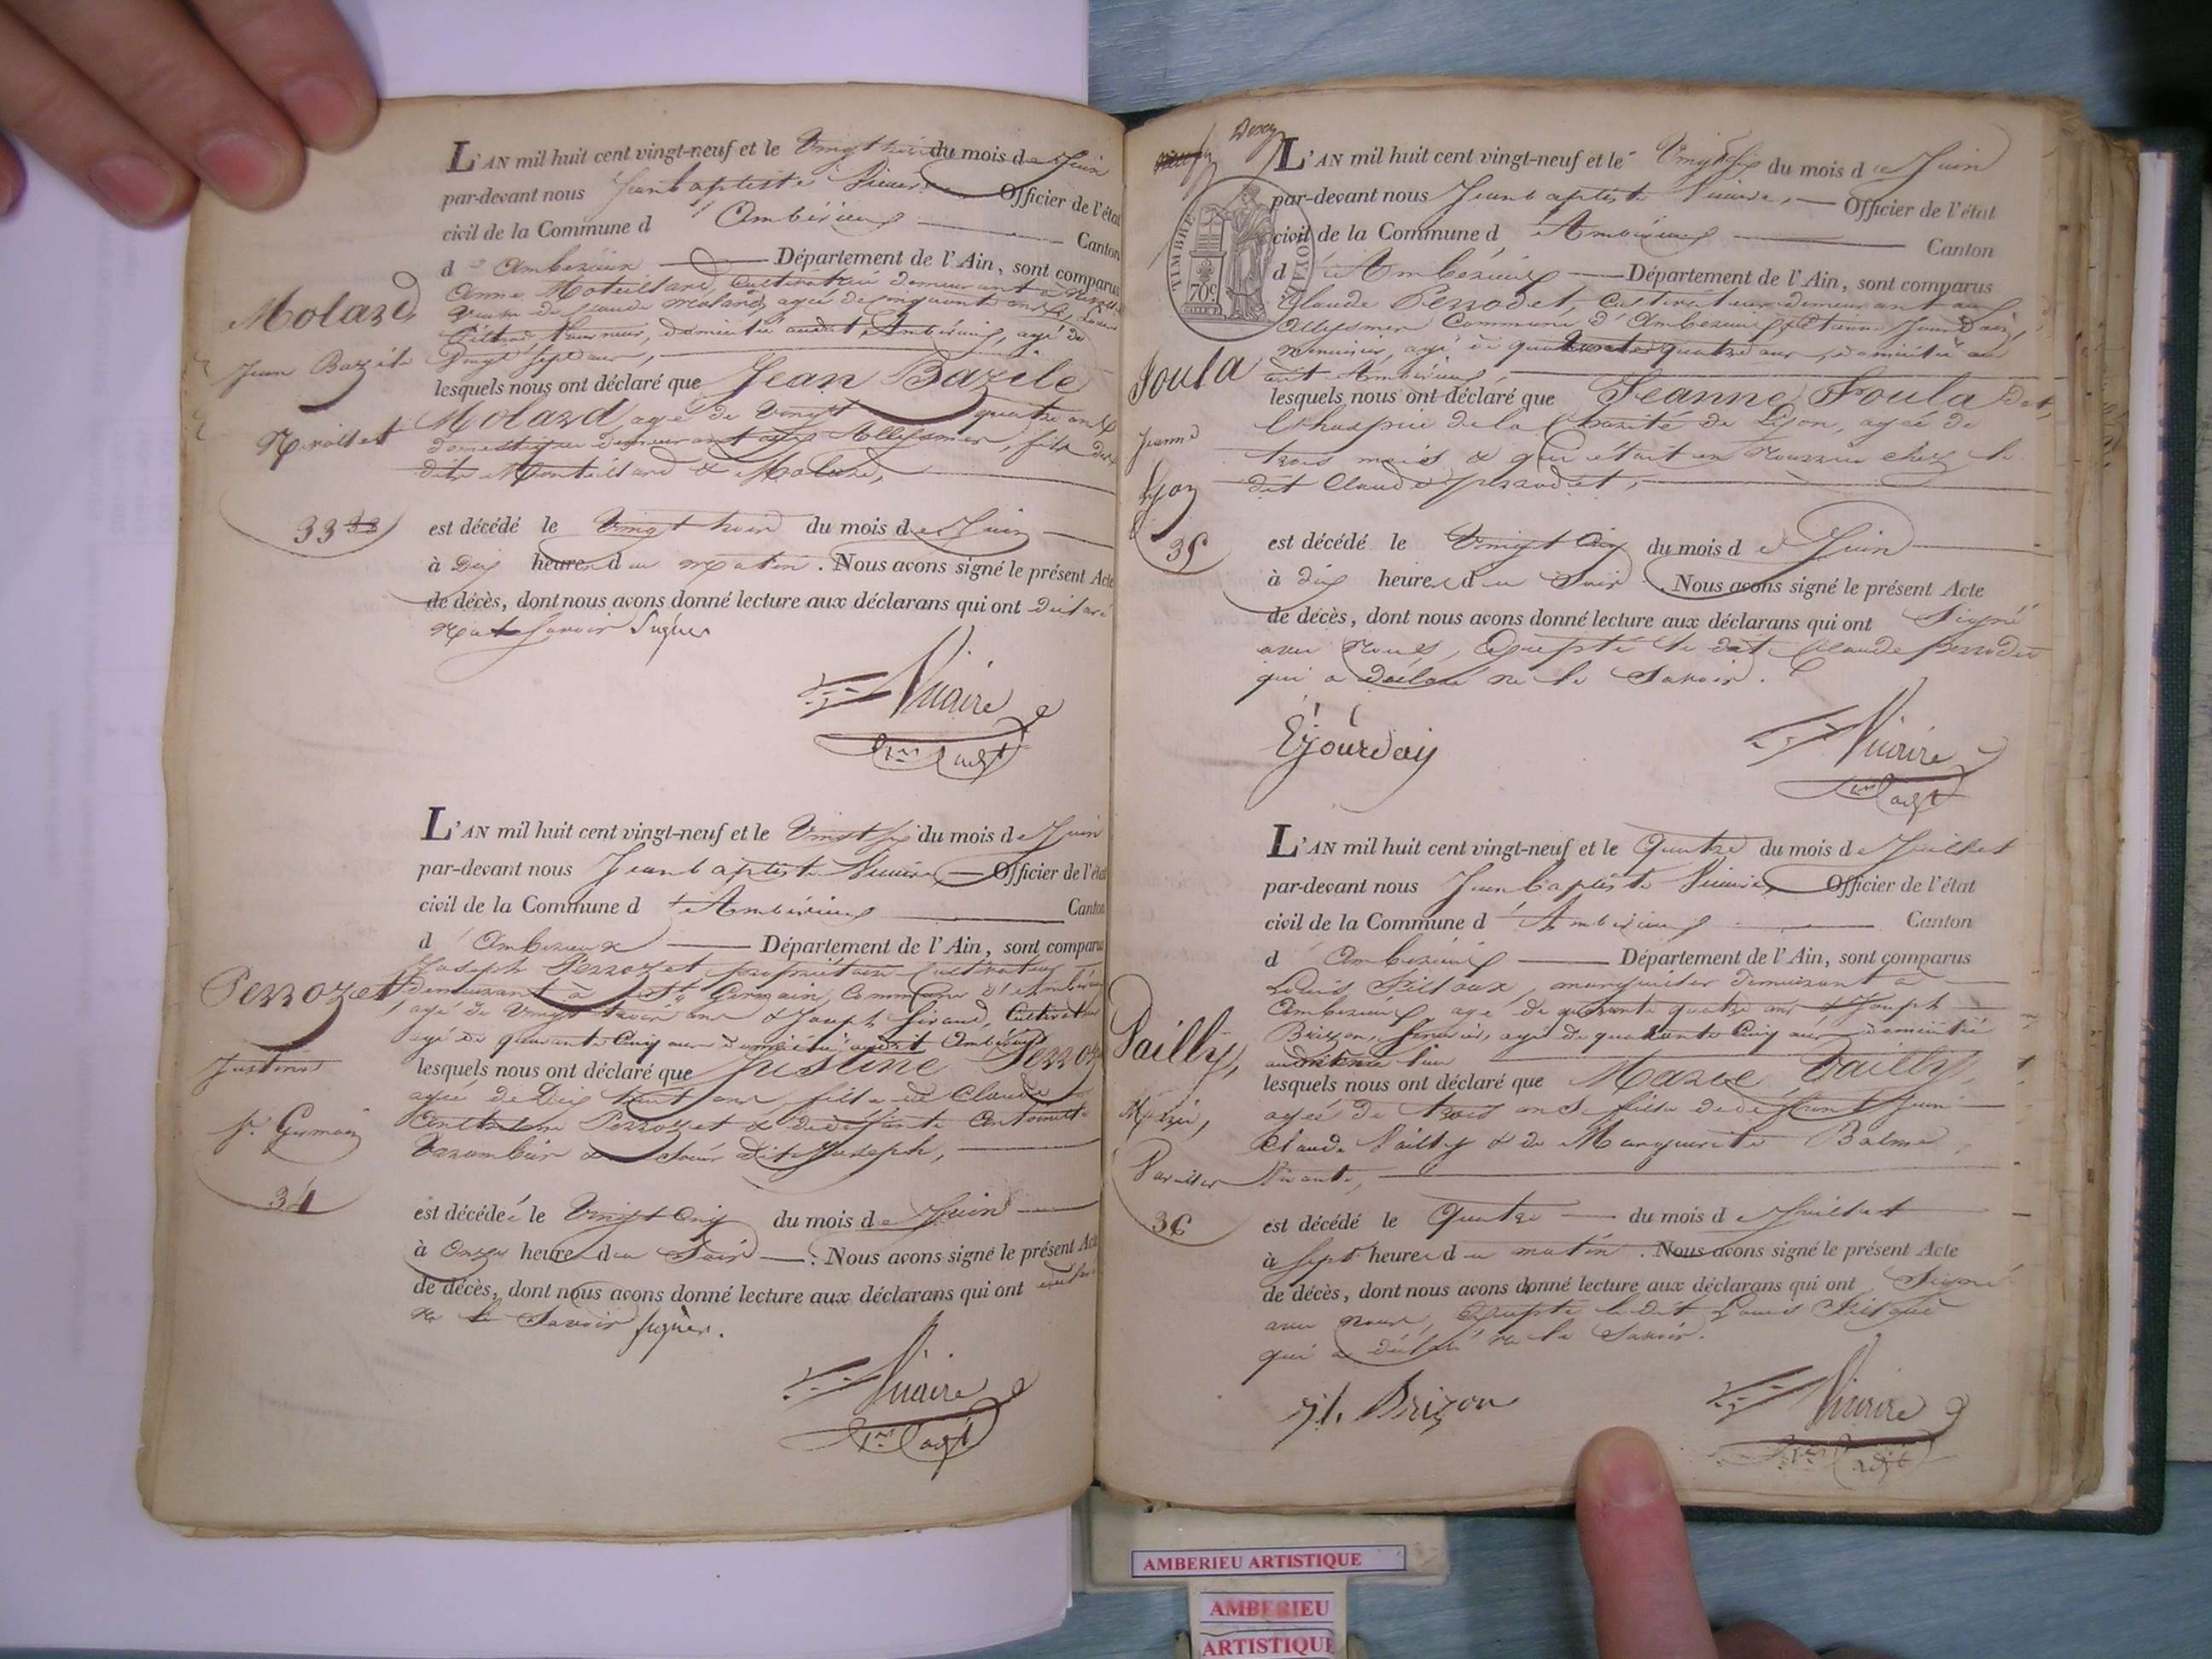 L'AN mil huit cent vingt-neuf et le Vingt trois du mois de Juin
par-devant nous Jean baptiste Vicaire Officier de l'état
civil de la Commune d'Ambérieux Canton
d'Ambérieux Département de l'Ain, sont comparus
Anne Cultivatrice demeurant à
Molard, veuve de Claude molard, agée de cinquante ans
domicilié audit Ambérieux, agé de
Jean Bazile Vingt sept ans,
lesquels nous ont déclaré que Jean Bazile
Molard, agé de Vingt quatre ans
domestique demeurant aux Allysmes, fils des
dits & Molard,
33 38 est décédé le Vingt trois du mois de Juin
à Dix heures du matin. Nous avons signé le présent Acte
de décès, dont nous avons donné lecture aux déclarans qui ont déclaré
ne savoir Signer
Vicaire
1er adjt
L'AN mil huit cent vingt-neuf et le Vingt six du mois de Juin
par-devant nous Jean baptiste Vicaire Officier de l'état
civil de la Commune d'Ambérieux Canton
d'Ambérieux Département de l'Ain, sont comparus
Joseph Perrozet, propriétaire Cultivateur
Perrozet demeurant à St Germain, Commune d'Ambérieux
agé de Vingt trois ans & Joseph Giraud, Cultivateur
agé de quarante Cinq ans domicilié audit Ambérieux
Justine lesquels nous ont déclaré que Justine Perroz
agée de Dix huit ans, fille de Claude
St Germain Perrozet & de défunte Antoinette
Varambier & Soeur dit Joseph,
34
est décédée le Vingt Cinq du mois de Juin
à Onze heures du Soir. Nous avons signé le présent Acte
de décès, dont nous avons donné lecture aux déclarans qui ont
ne le Savoir signer.
Vicaire
1er adjt
TIMBRE ROYAL
70 c.
L'AN mil huit cent vingt-neuf et le Vingt six du mois de Juin
par-devant nous Jean baptiste Vicaire, Officier de l'état
civil de la Commune d'Ambérieux Canton
d'Ambérieux Département de l'Ain, sont comparus
Claude Perrodet, Cultivateur demeurant aux
Allysmes Commune d'Ambérieux & Etienne Jourdain,
menuisier, agé de quarante quatre ans, domicilié au
dit Ambérieux,
Foula
lesquels nous ont déclaré que Jeanne Foula de
l'hospice de la Charité de Lyon, agée de
Jeanne trois mois & qui était en Nourrice chez le
Lyon dit Claude Perrodet,
35 est décédé le Vingt Cinq du mois de Juin
à dix heures du Soir. Nous avons signé le présent Acte
de décès, dont nous avons donné lecture aux déclarans qui ont Signé
avec Nous, Excepté le dit Claude Perrodet
qui a déclaré ne le Savoir.
E jourdain
Vicaire
1er adjt
L'AN mil huit cent vingt-neuf et le Quatre du mois de Juillet
par-devant nous Jean baptiste Vicaire Officier de l'état
civil de la Commune d'Ambérieux Canton
d'Ambérieux Département de l'Ain, sont comparus
Louis, marguillier demeurant à
Ambérieux, agé de quarante quatre ans & Joseph
Brizon, agé de quarante Cinq ans domicilié
Vailly,
lesquels nous ont déclaré que Marie Vailly,
agée de trois ans fille de défunt Jean
Marie, Claude Vailly & de Marguerite Balme,
Vivante,
36 est décédé le Quatre du mois de Juillet
à Sept heures du matin. Nous avons signé le présent Acte
de décès, dont nous avons donné lecture aux déclarans qui ont Signé
avec Nous, Excepté le dit Louis
qui a déclaré ne le Savoir.
Brizon
Vicaire
1er adjt
AMBERIEU ARTISTIQUE
AMBERIEU
ARTISTIQUE